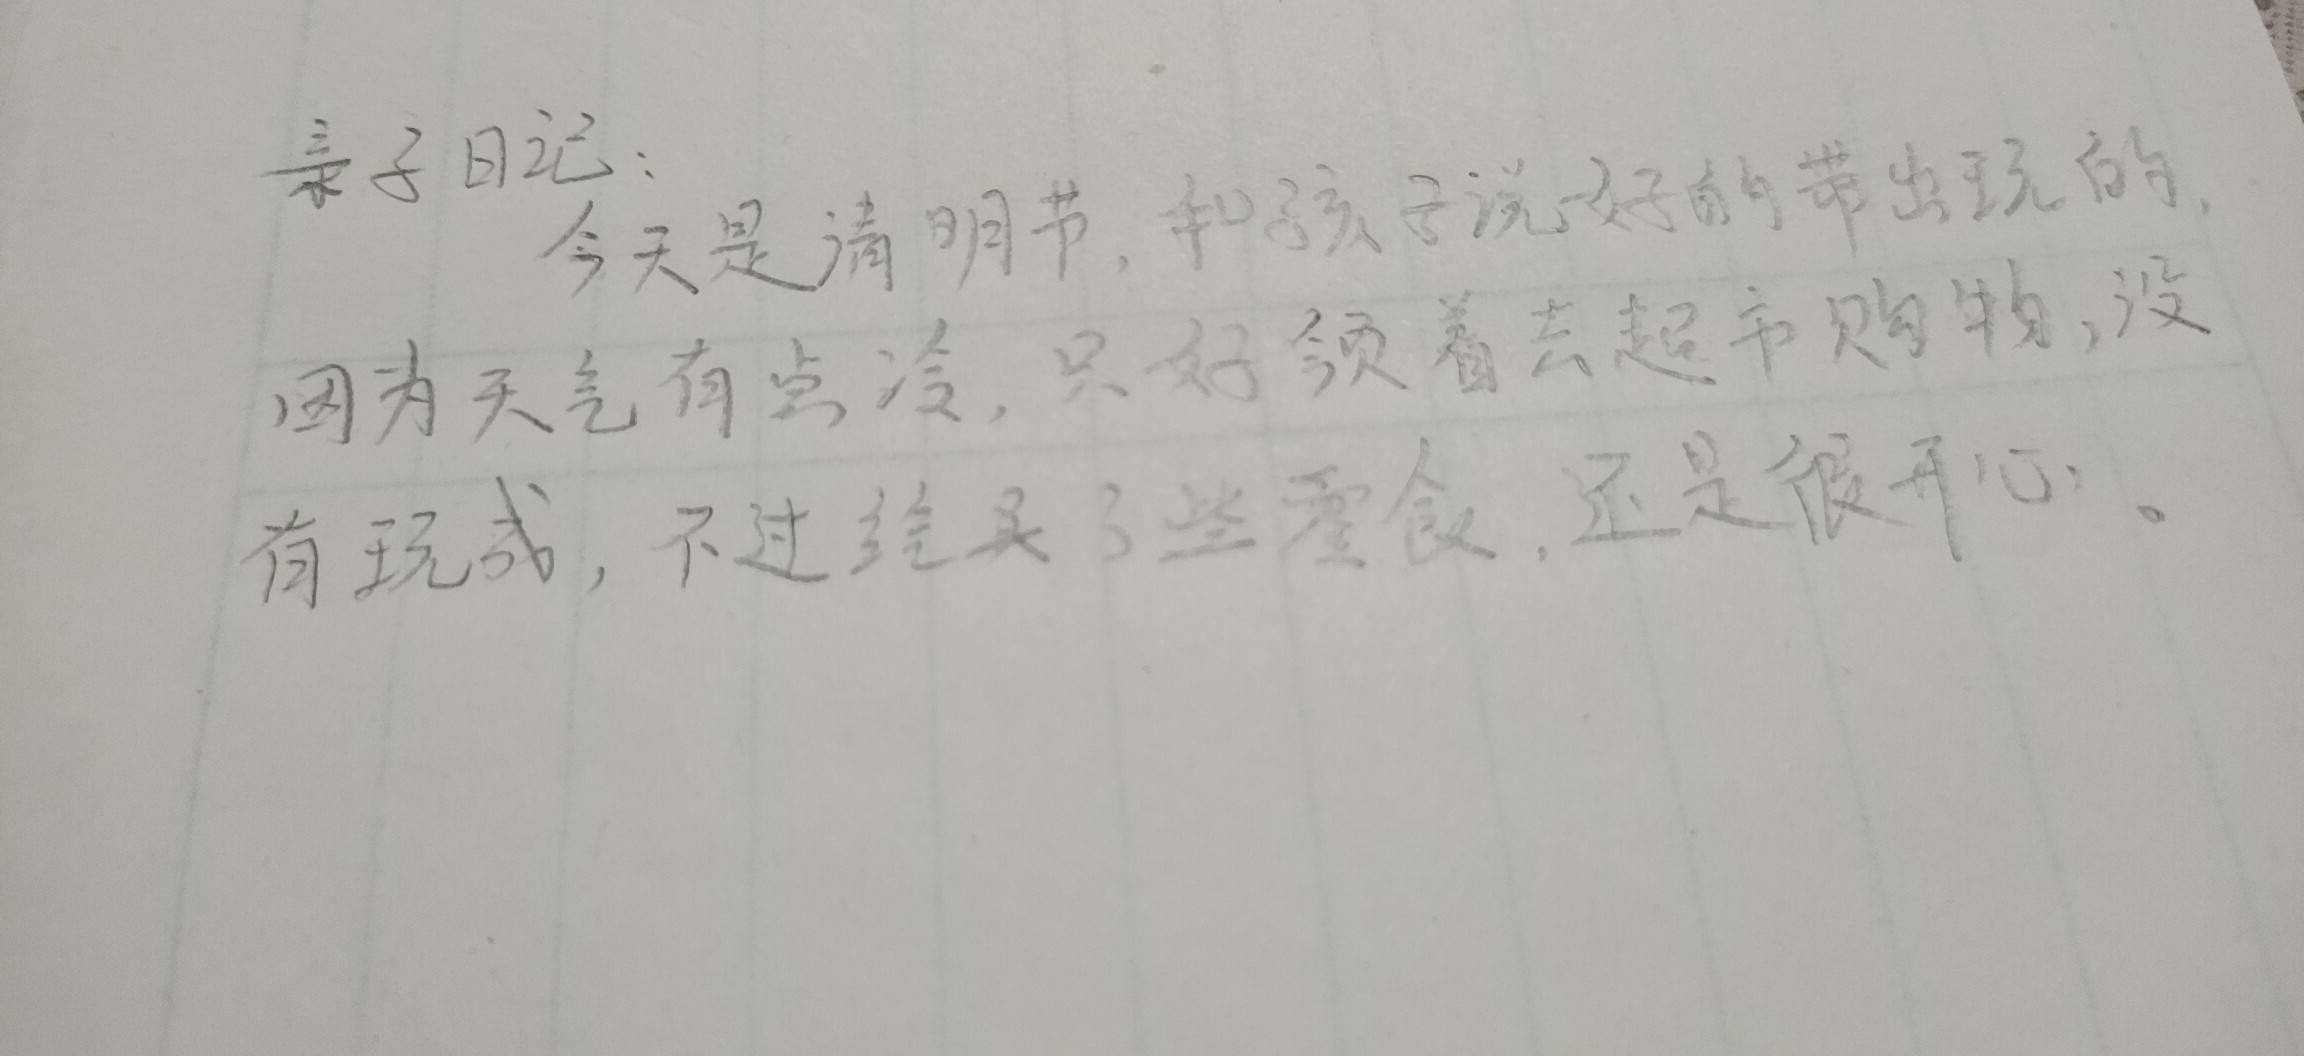 亲子日记：
今天是清明节，和孩子说好的带出玩的，
因为天气有点冷，只好领着去超市购物，没
有玩成，不过给买了些零食，还是很开心。